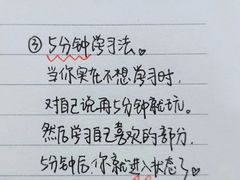 ③ 5分钟学习法。
当你实在不想学习时,
对自己说再5分钟就玩。
然后学习自己喜欢的部分,
5分钟后,你就进入状态了。